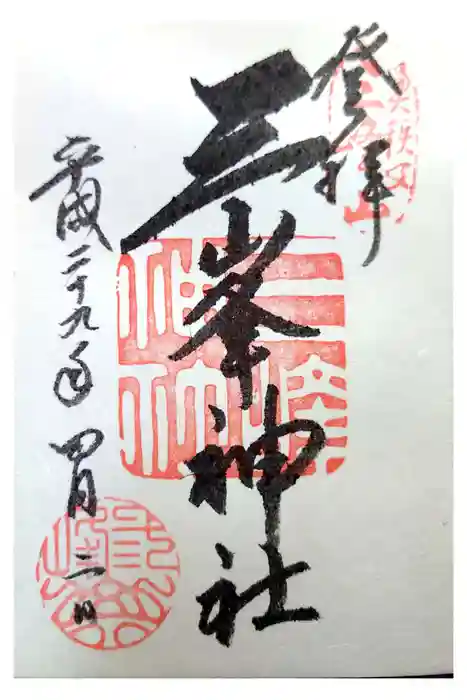 登拝
奥秩父
三峯山
三峯神社
平成二十九年四月二日